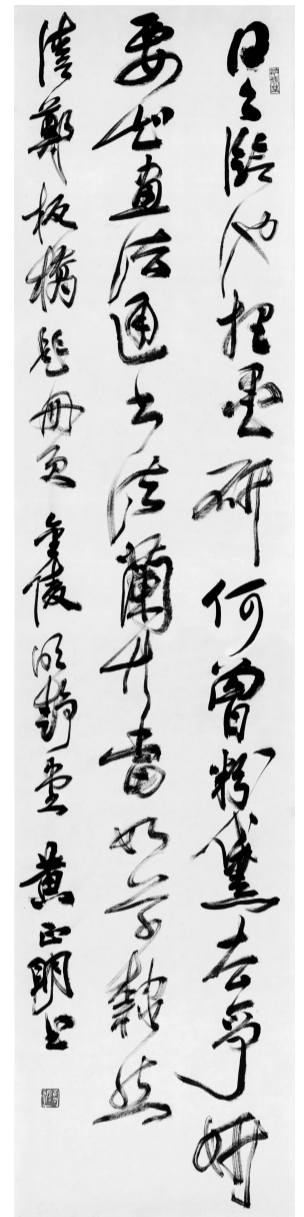 日日临池把墨研何曾粉黛去争妍
要知画法通书法兰竹当如草隶然
清郑板桥题册页 金陵汲静堂 黄正明书